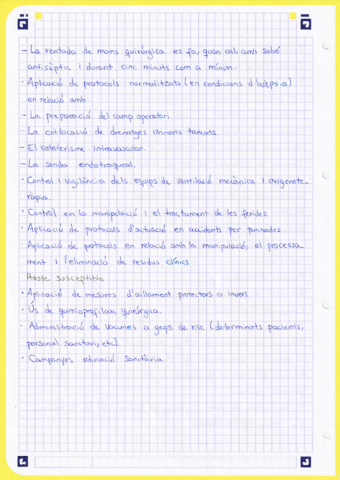 - La rentada de mans quirúrgica es fa, quan cal amb sabó
antisèptic i durant cinc minuts com a mínim.
· Aplicació de protocols normalitzats (en condicions d'asèpsia)
en relació amb
- La preparació del camp operatori
- La col·locació de drenatges urinaris tancats.
- El cateterisme intravascular.
- La sonda endotraqueal.
· Control i vigilància dels equips de ventilació mecànica i oxigenote-
ràpia.
· Control en la manipulació i el tractament de les ferides.
· Aplicació de protocols d'actuació en accidents per punxades.
· Aplicació de protocols en relació amb la manipulació, el processa
ment i l'eliminació de residus clínics.
Hoste susceptible
· Aplicació de mesures d'aïllament protectors o invers.
· Ús de quimioprofilaxi quirúrgica.
· Administració de vacunes a grups de risc (determinats pacients,
personal sanitari, etc).
· Campanyes educació sanitària.